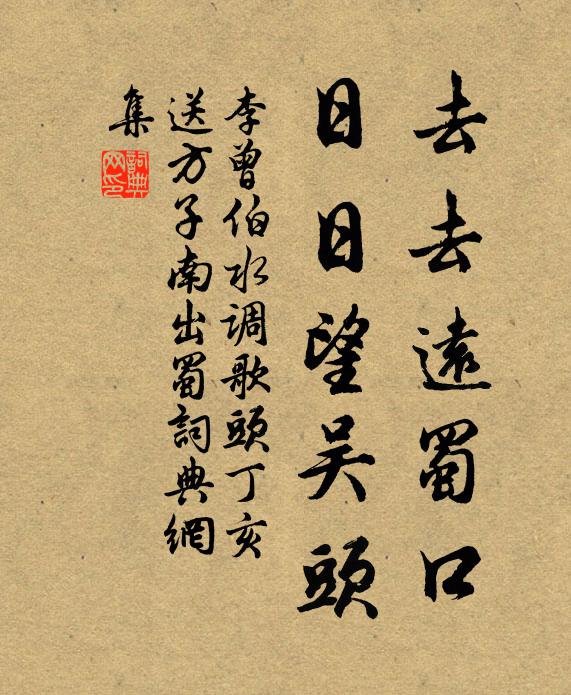 去去遠蜀口
日日望吴頭
李曾伯水调歌頭丁亥
送方子南出蜀詞典網
集
詞典网印